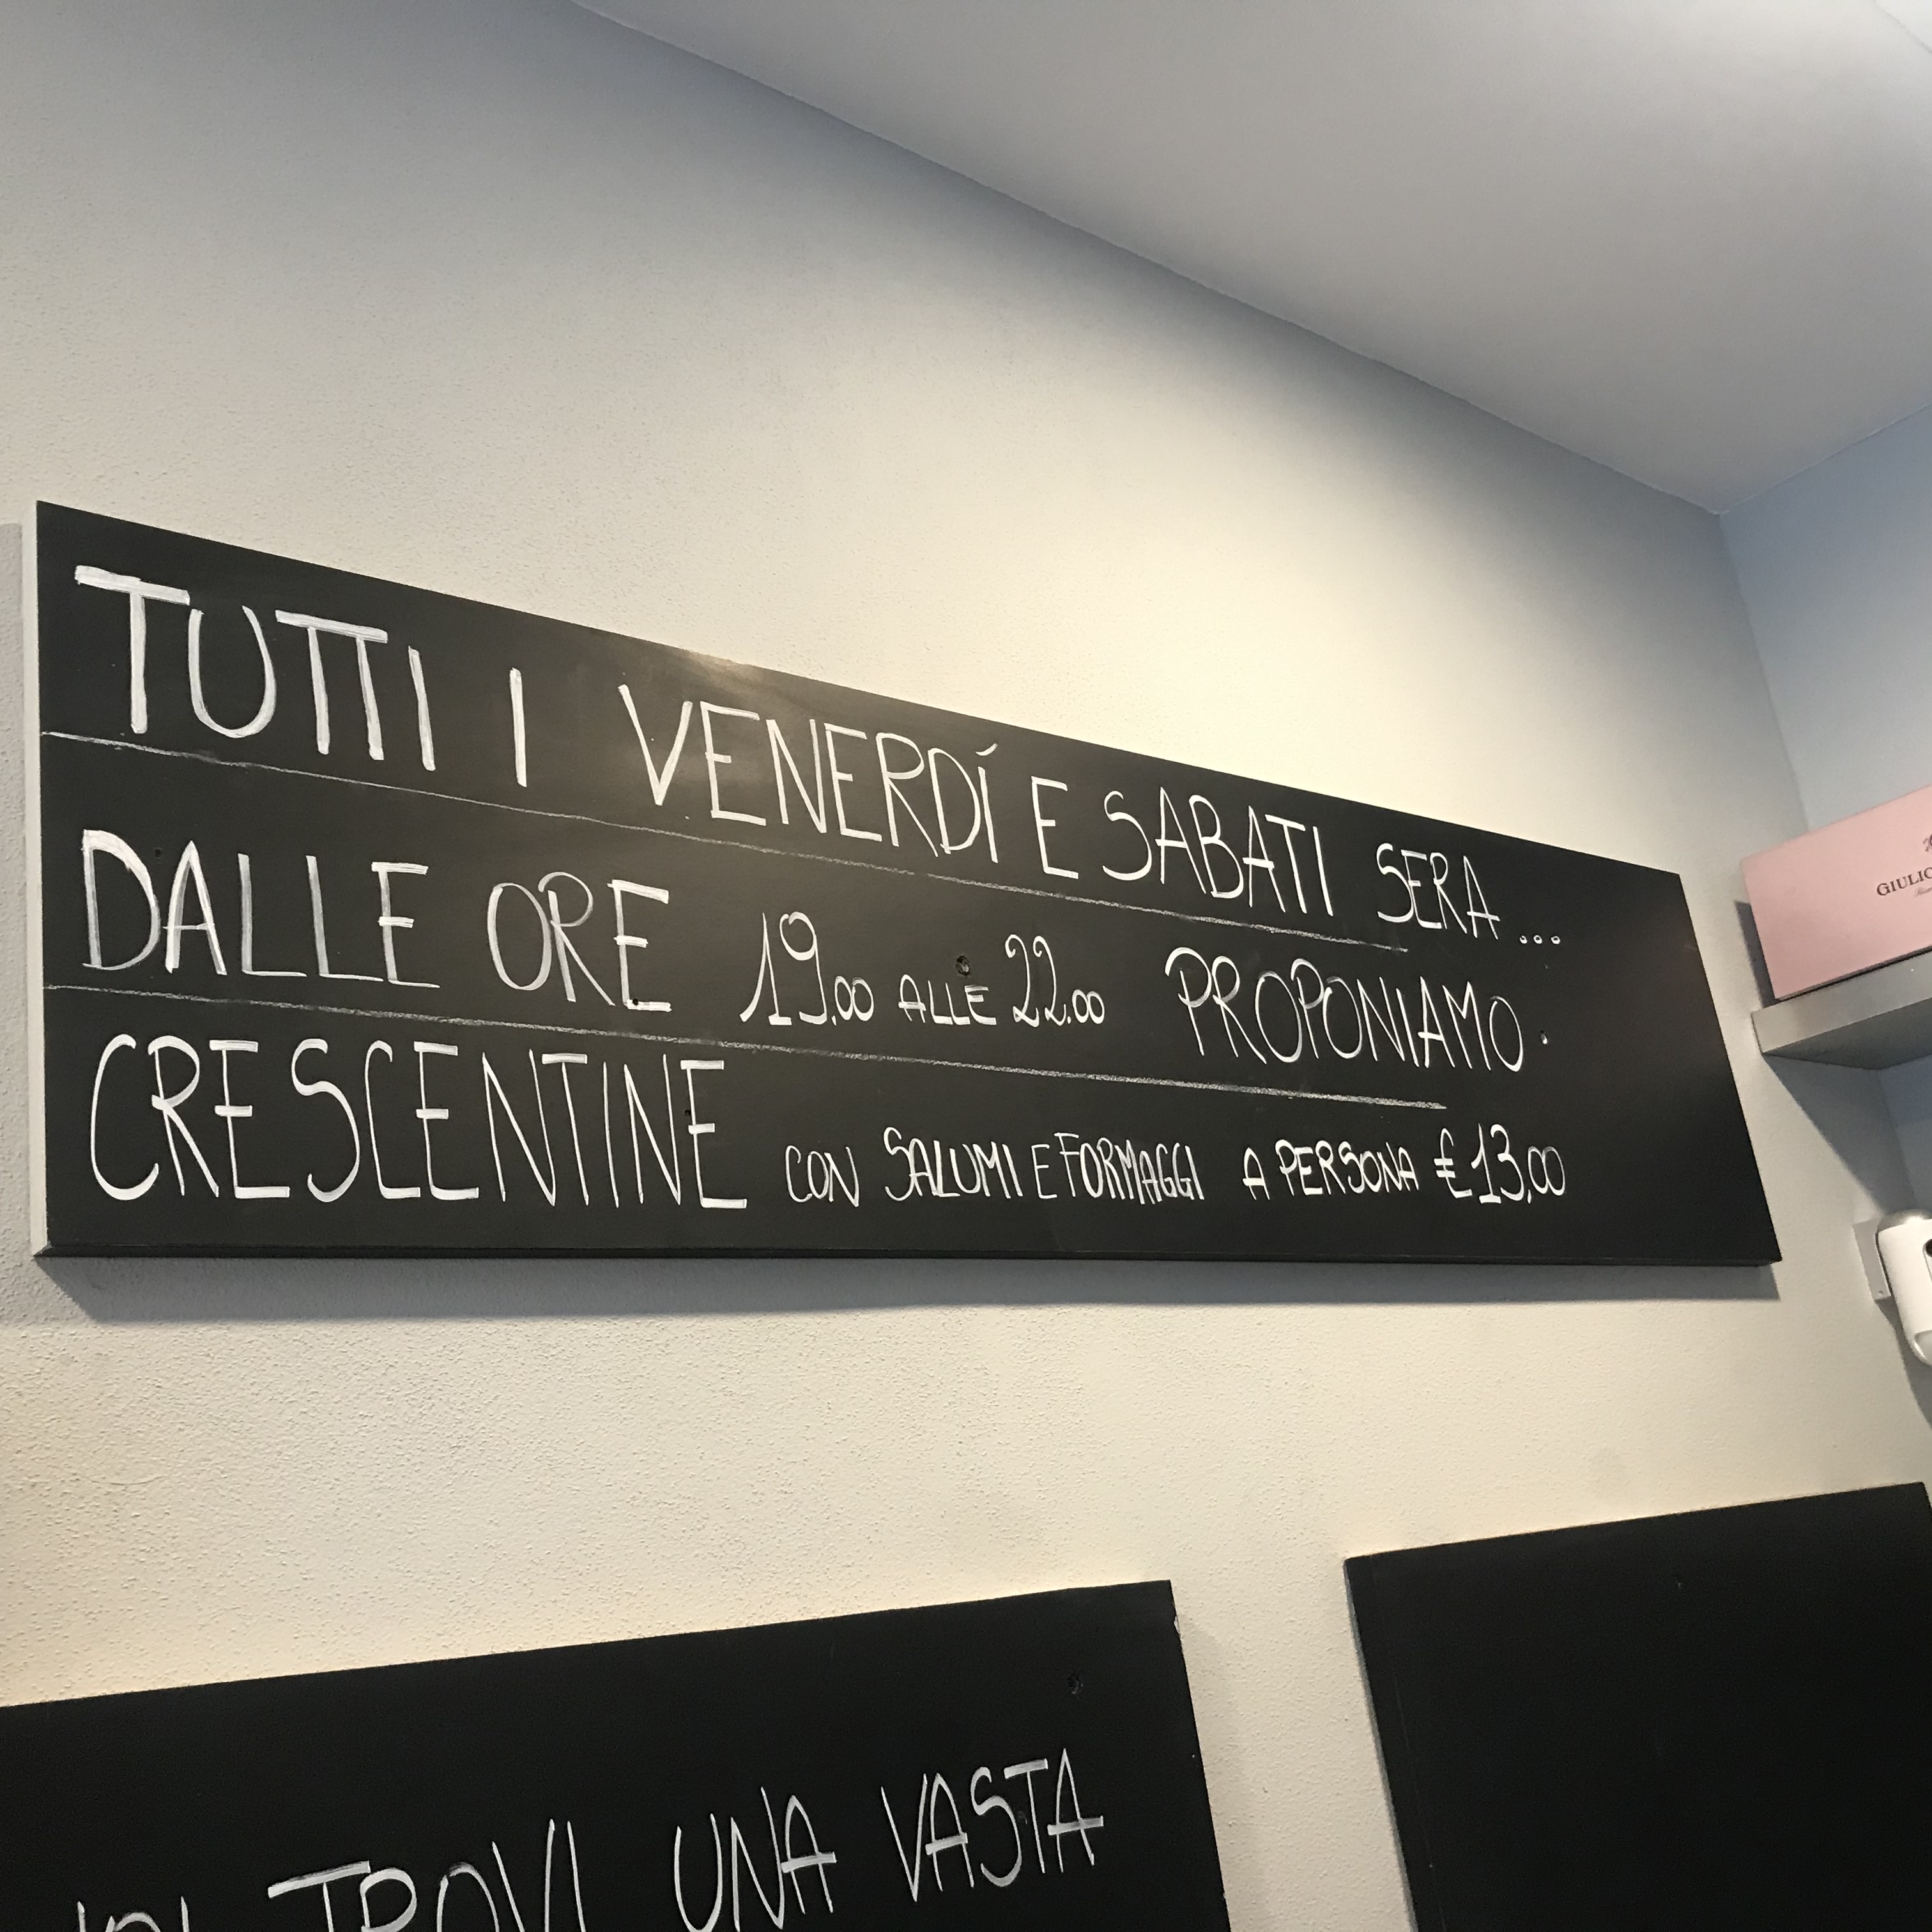 TUTTI I VENERDÍ E SABATI SERA...
DALLE ORE 19,00 ALLE 22.00 PROPONIAMO
CRESCENTINE CON SALUMI E FORMAGGI A PERSONA € 13,00
TROVI UNA VASTA